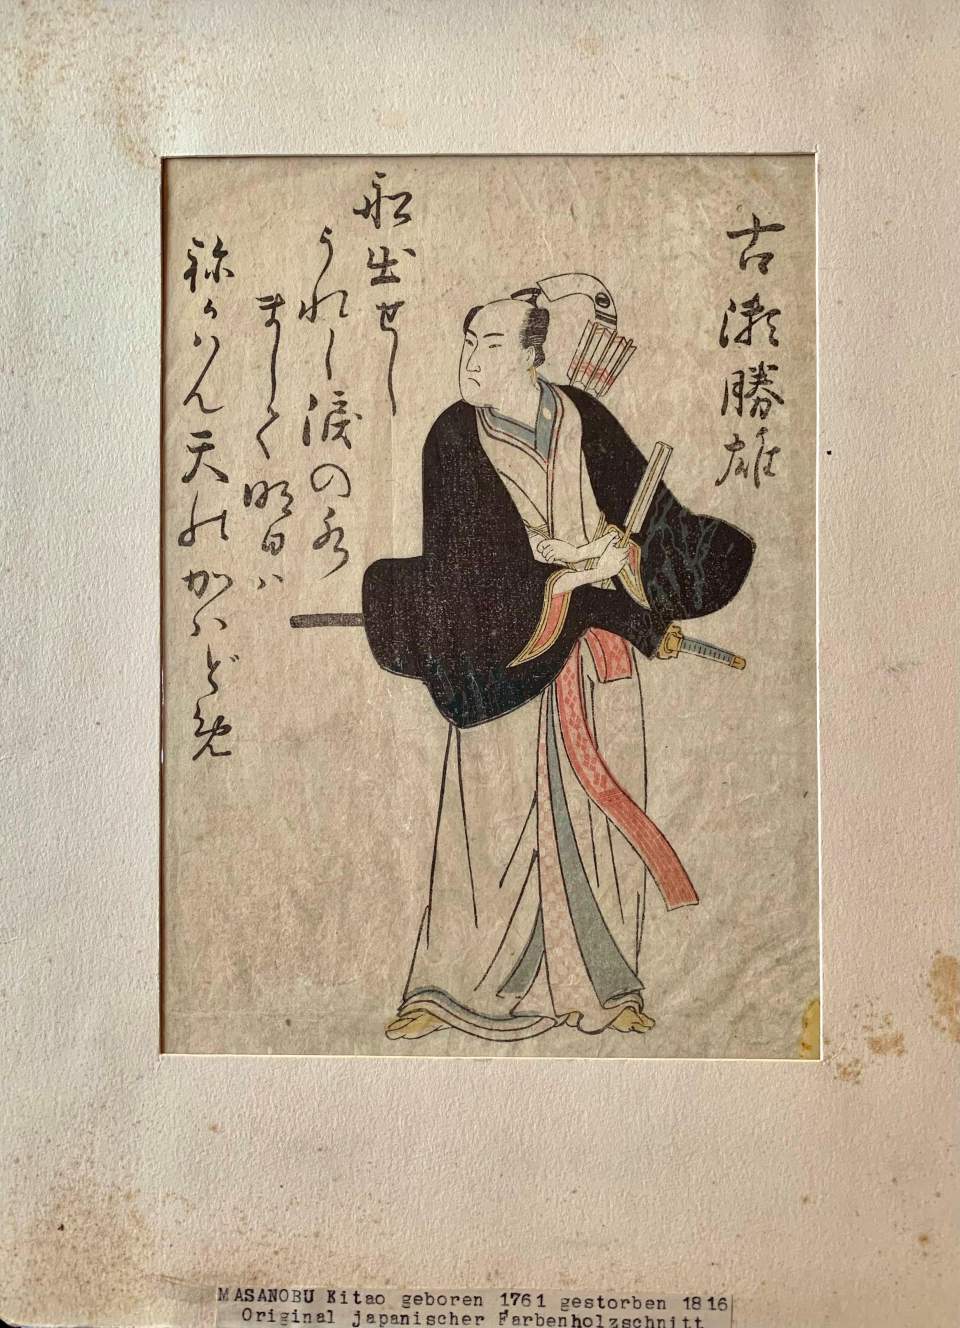 古瀬勝雄
舩出せし
うれし涙の水
まして明日ハ
祢かハん天のかハどめ
MASANOBU Kitao geboren 1761 gestorben 1816
Original japanischer Farbenholzschnitt